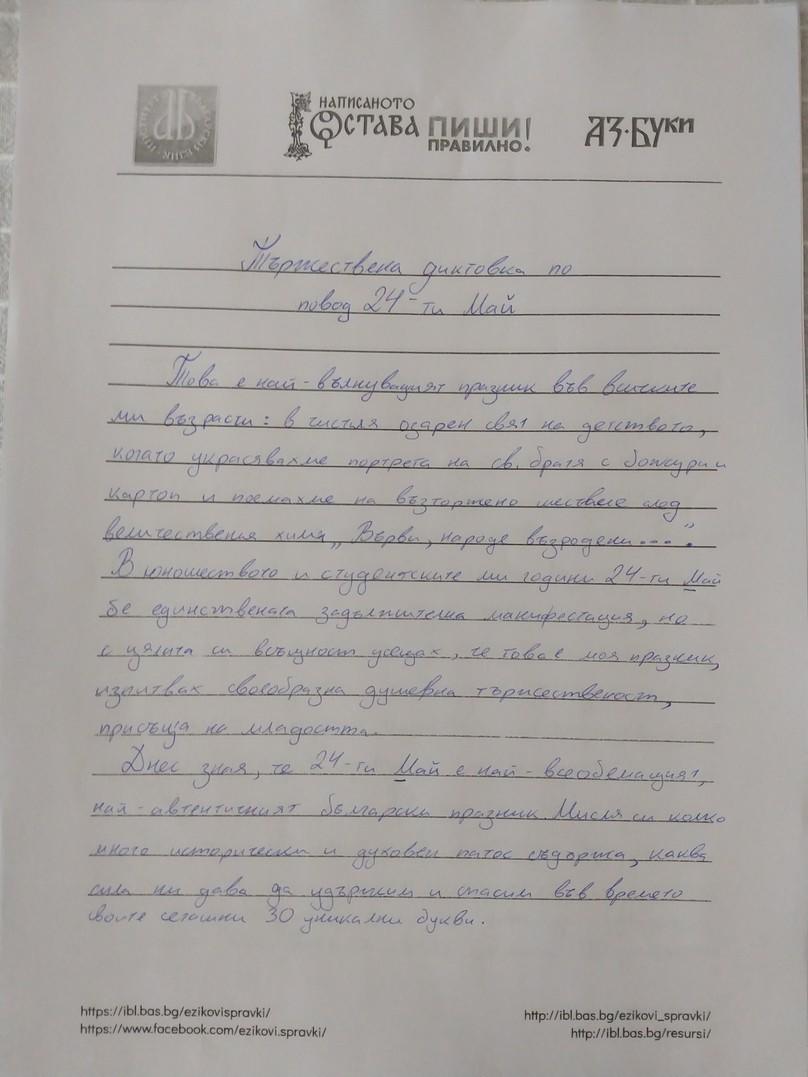 НАПИСАНОТО
ОСТАВА ПИШИ!
ПРАВИЛНО.
АЗ·БУКИ
Тържествена диктовка по
повод 24-ти Май
Това е най-вълнуващият празник във всичките
ми възрасти: в чистия озарен свят на детството,
когато украсявахме портрета на св. братя с божури и
картон и поемахме на възторжено шествие след
величествения химн „Върви, народе възродени...“.
В юношеството и студентските ми години 24-ти Май
бе единствената задължителна манифестация, но
с цялата си всъщност усещах, че това е моя празник,
изпитвах своеобразна душевна тържественост,
присъща на младостта.
Днес зная, че 24-ти Май е най-всеобемащият,
най-автентичният български празник. Мисля си колко
много исторически и духовен патос съдържа, каква
сила ни дава да удържим и спасим във времето
своите сегашни 30 уникални букви.
https://ibl.bas.bg/ezikovispravki/
https://www.facebook.com/ezikovi.spravki/
http://ibl.bas.bg/ezikovi_spravki/
http://ibl.bas.bg/resursi/